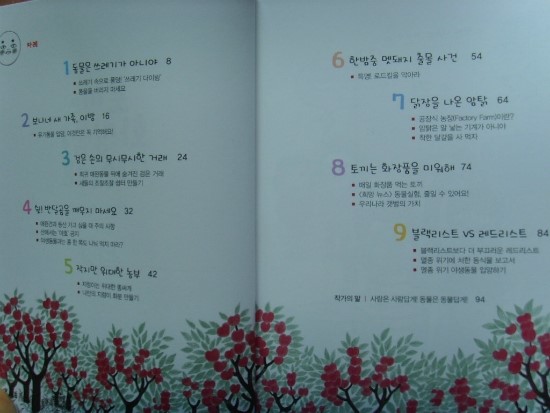 차례
1 동물은 쓰레기가 아니야 8
동물을 버리지 마세요
2 보니네 새 가족, 이방 16
3 검은 손의 무시무시한 거래 24
4 쉿! 반달곰을 깨우지 마세요 32
산에서는 '야호' 금지
5 작지만 위대한 농부 42
지렁이는 위대한 똥싸개
나만의 지렁이 화분 만들기
6 한밤중 멧돼지 출몰 사건 54
특명! 로드킬을 막아라
7 닭장을 나온 암탉 64
공장식 농장(Factory Farm)이란?
암탉은 알 낳는 기계가 아니야
착한 달걀을 사 먹자
8 토끼는 화장품을 미워해 74
매일 화장품 먹는 토끼
<희망 뉴스> 동물실험, 줄일 수 있어요!
우리나라 갯벌의 가치
9 블랙리스트 VS 레드리스트 84
블랙리스트보다 더 부끄러운 레드리스트
멸종 위기에 처한 동식물 보고서
멸종 위기 야생동물을 입양하기
작가의 말 | 사람은 사람답게! 동물은 동물답게! 94